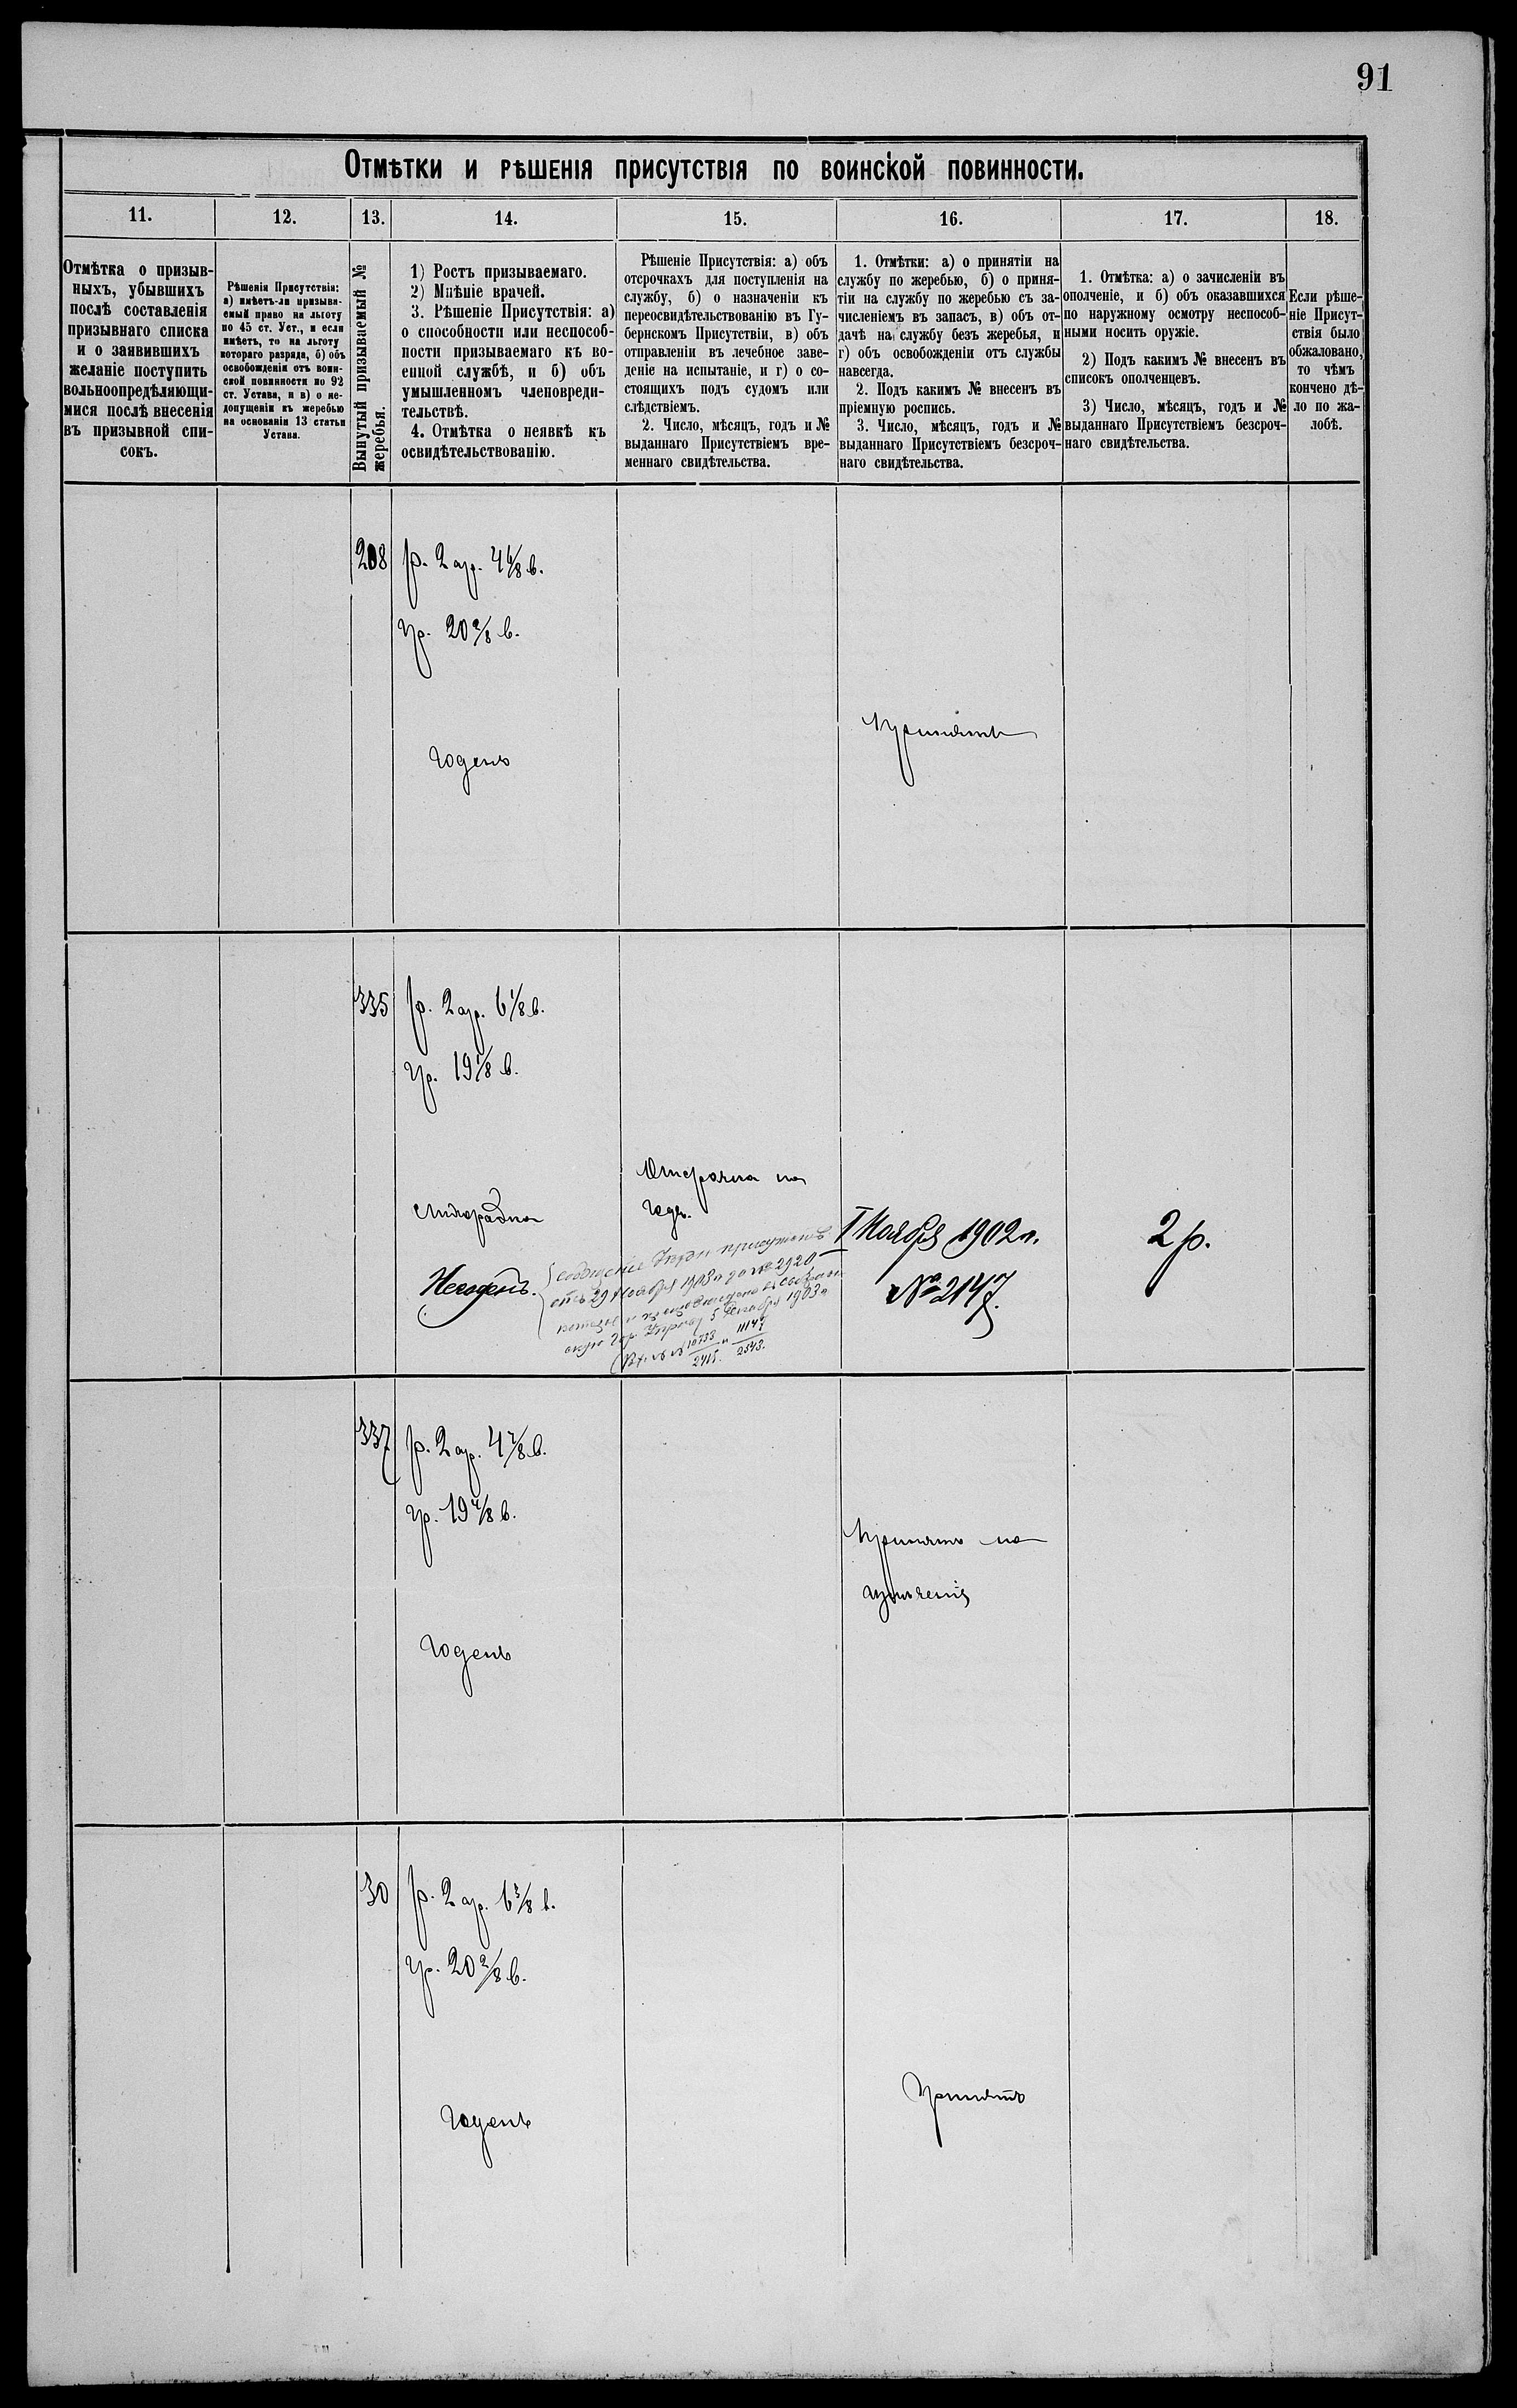 91
Отмѣтки и рѣшенія присутствія по воинской повинности.
11.
12.
13.
14.
15.
16.
17.
18.
Отмѣтка о призыв-
ныхъ, убывшихъ
послѣ составленія
призывнаго списка
и о заявившихъ
желаніе поступить
вольноопредѣляющи-
мися послѣ внесенія
въ призывной спи-
сокъ.
Рѣшенія Присутствія:
а) имѣетъ-ли призыва-
емый право на льготу
по 45 ст. Уст., и если
имѣетъ, то на льготу
котораго разряда, б) объ
освобожденіи отъ воин-
ской повинности по 92
ст. Устава, и в) о не-
допущеніи къ жеребью
на основаніи 13 статьи
Устава.
Вынутый призываемый №
жеребья.
1) Ростъ призываемаго.
2) Мнѣніе врачей.
3. Рѣшеніе Присутствія: а)
о способности или неспособ-
ности призываемаго къ во-
енной службѣ, и б) объ
умышленномъ членовреди-
тельствѣ.
4. Отмѣтка о неявкѣ къ
освидѣтельствованію.
Рѣшеніе Присутствія: а) объ
отсрочкахъ для поступленія на
службу, б) о назначеніи къ
переосвидѣтельствованію въ Гу-
бернскомъ Присутствіи, в) объ
отправленіи въ лечебное заве-
деніе на испытаніе, и г) о со-
стоящихъ подъ судомъ или
слѣдствіемъ.
2. Число, мѣсяцъ, годъ и №
выданнаго Присутствіемъ вре-
меннаго свидѣтельства.
1. Отмѣтки: а) о принятіи на
службу по жеребью, б) о приня-
тіи на службу по жеребью съ за-
численіемъ въ запасъ, в) объ от-
дачѣ на службу безъ жеребья, и
г) объ освобожденіи отъ службы
навсегда.
2. Подъ какимъ № внесенъ въ
пріемную роспись.
3. Число, мѣсяцъ, годъ и №
выданнаго Присутствіемъ безсроч-
наго свидѣтельства.
1. Отмѣтка: а) о зачисленіи въ
ополченіе, и б) объ оказавшихся
по наружному осмотру неспособ-
ными носить оружіе.
2) Подъ какимъ № внесенъ въ
списокъ ополченцевъ.
3) Число, мѣсяцъ, годъ и №
выданнаго Присутствіемъ безсроч-
наго свидѣтельства.
Если рѣше-
ніе Присут-
ствія было
обжаловано,
то чѣмъ
кончено дѣ-
ло по жа-
лобѣ.
208
р. 2 ар. 4 6/8 в.
гр. 20 2/8 в.
Годенъ
Принятъ
335
р. 2 ар. 6 1/8 в.
гр. 19 1/8 в.
Отсрочка на
годъ.
Негоденъ.
отъ 29 Ноября 1903 г за № 2920
5 Декабря 1903 г
10733 и 11147
2415. 2543.
1 Ноября 1902 г.
№ 2147.
2 р.
337
р. 2 ар. 4 2/8 в.
гр. 19 4/8 в.
Годенъ
Принятъ
30
р. 2 ар. 6 3/8 в.
гр. 20 2/8 в.
Годенъ
Принятъ